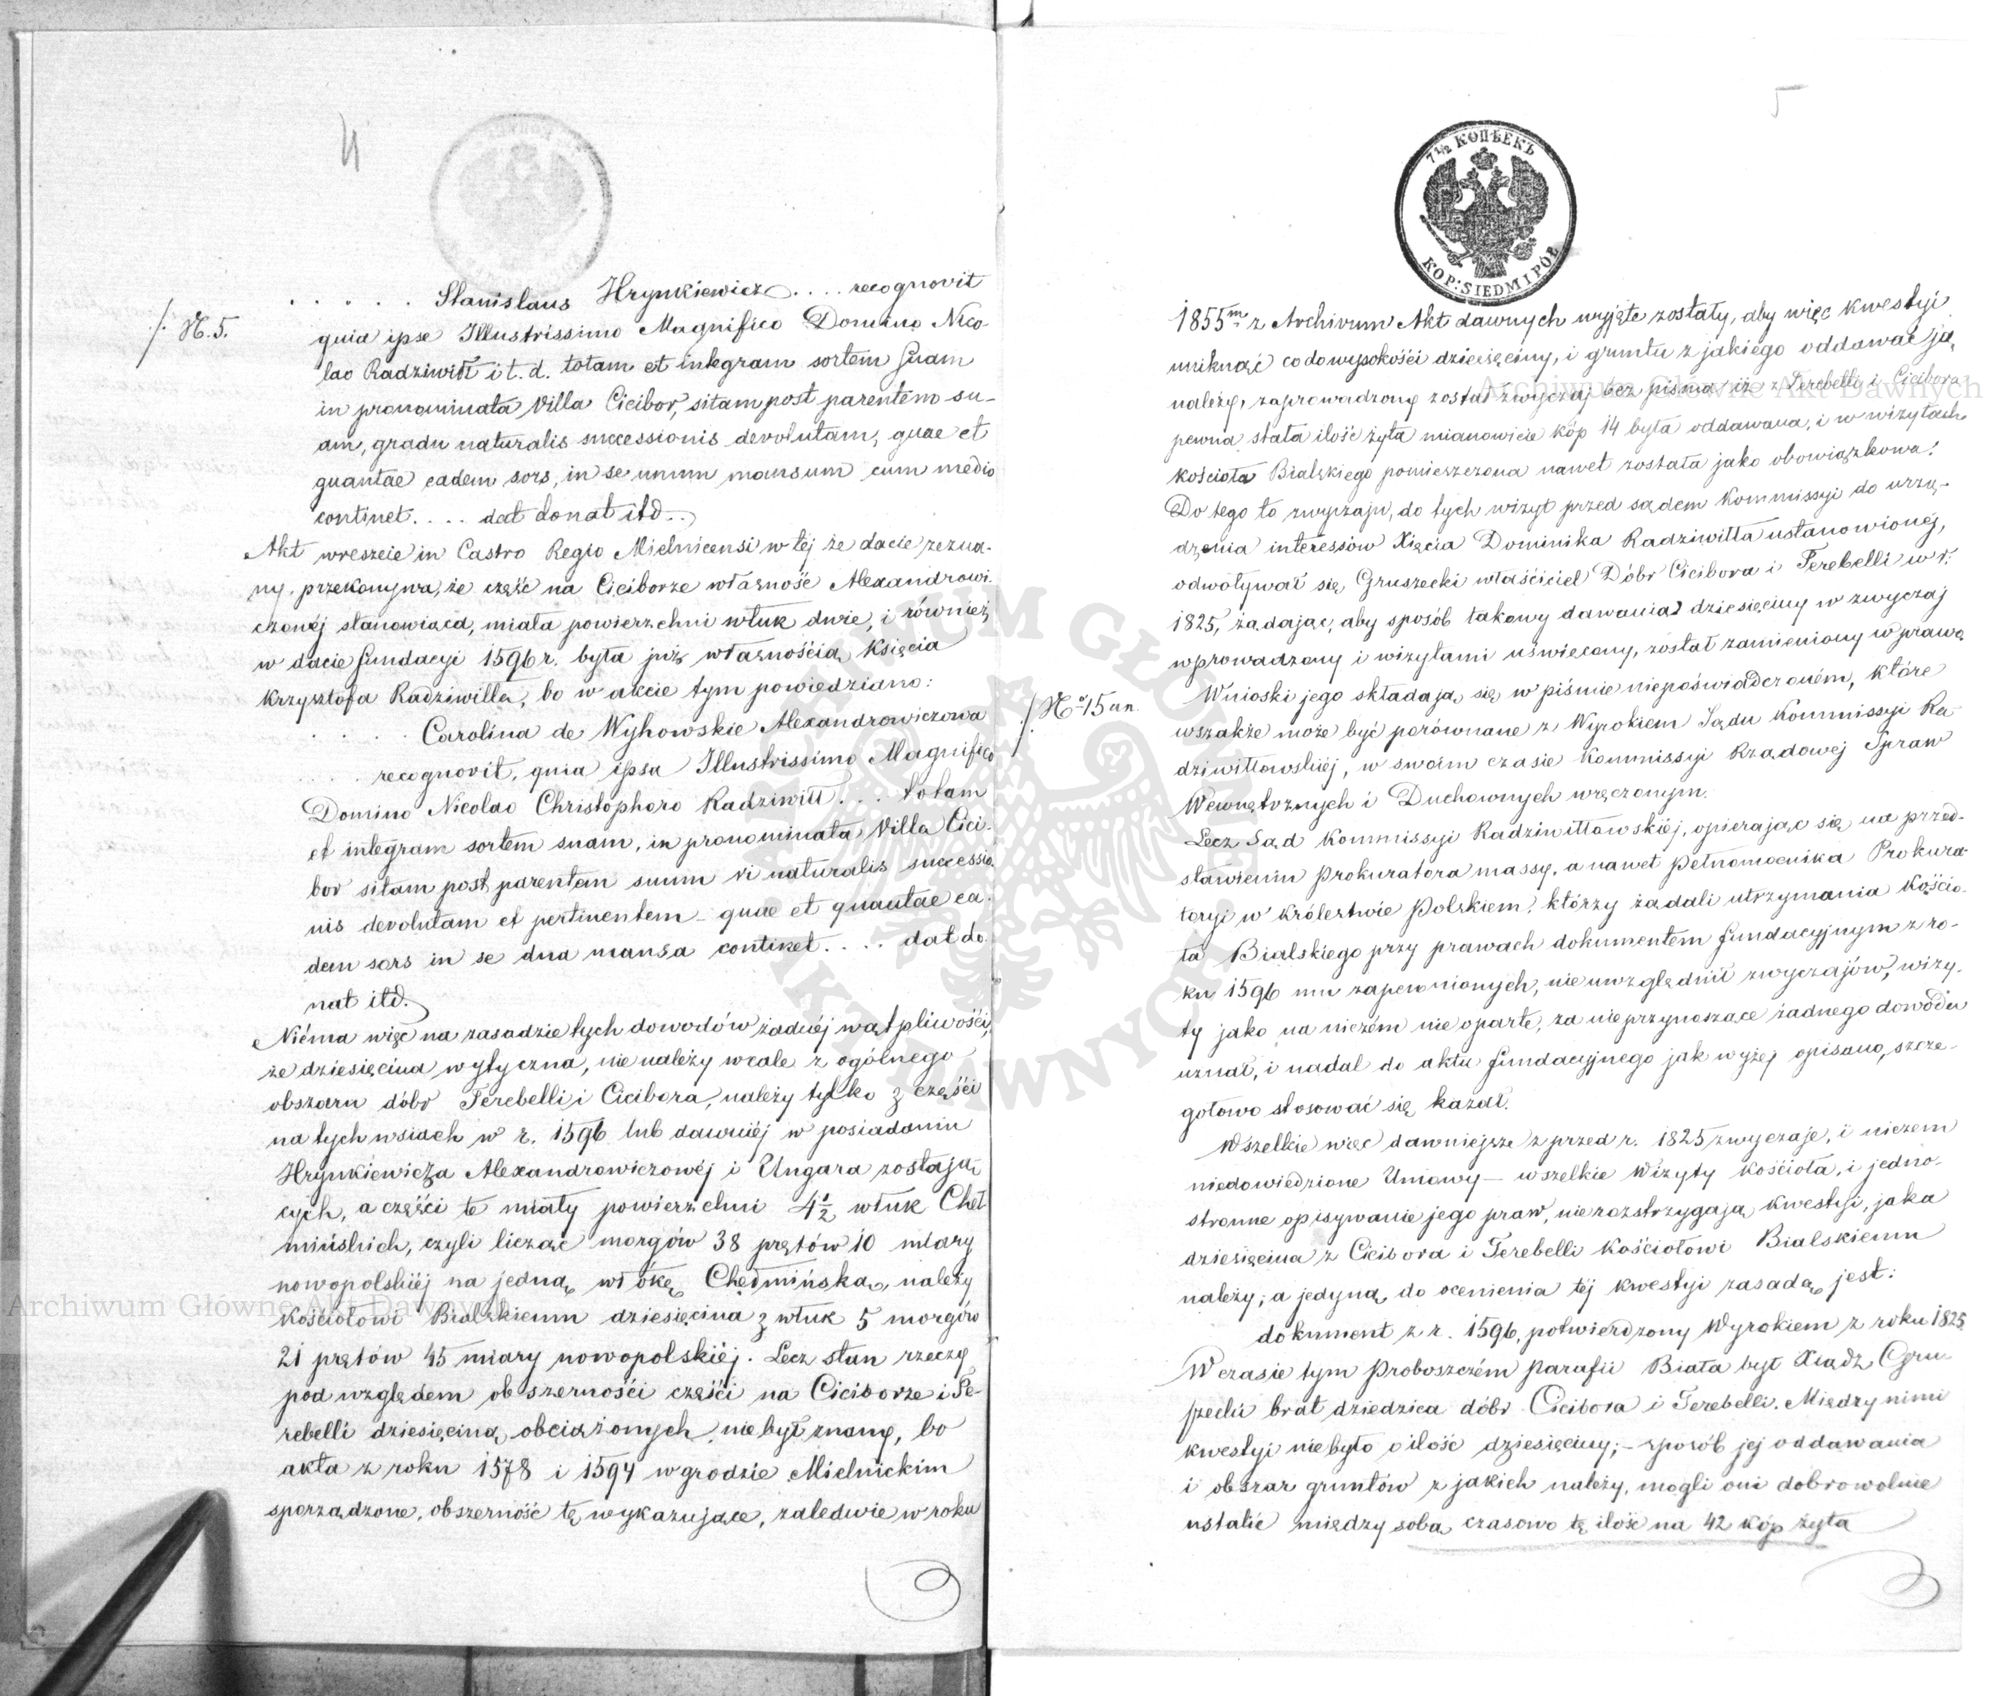 4
. . . . . Stanislaus Hrynkiewicz . . . . recognovit
/: N. 5.
quia ipse Illustrissimo Magnifico Domino Nico-
lao Radziwiłł i t. d. totam et integram sortem suam
in pronominata Villa Cicibor, sitam post parentem su-
am, gradu naturalis successionis devolutam, quae et
quantae eadem sors, in se unum mansum cum medio
continet . . . . dat donat itd..
Akt wreszcie in Castro Regio Mielnicensi w tej że dacie zezna-
ny, przekonywa, że część na Ciciborze własność Alexandrowi-
czowéj stanowiąca, miała powierzchni włuk dwie, i również
w dacie fundacyi 1596 r. była już własnością Księcia
Krzysztofa Radziwilla, bo w akcie tym powiedziano:
Carolina de Wyhowskie Alexandrowiczowa
. . . . recognovit, quia ipsa Illustrissimo Magnifico
Domino Nicolao Christophoro Radziwiłł . . . totam
et integram sortem suam, in pronominata Villa Cici-
bor sitam post parentem suum vi naturalis successio-
nis devolutam et pertinentem – quae et quantae ea-
dem sors in se dua mansa continet . . . . dat do-
nat itd.
Niéma więc na zasadzie tych dowodów żadnéj wątpliwości,
że dziesięcina wytyczna, nie należy wcale z ogólnego
obszaru dóbr Terebelli i Cicibora, należy tylko z części
na tych wsiach w r. 1596 lub dawniéj w posiadaniu
Hrynkiewicza Alexandrowiczowéj i Ungara zostają-
cych, a części te miały powierzchni 4½ włuk Cheł-
mińskich, czyli licząc morgów 38 prętów 10 miary
nowopolskiéj na jedną włókę Chełmińską, należy
Kościołowi Bialskiemu dziesięcina z włuk 5 morgów
21 prętów 45 miary nowopolskiéj. Lecz stan rzeczy
pod względem obszerności części na Ciciborze i Te-
rebelli dziesięciną obciążonych nie był znany, bo
akta z roku 1578 i 1594 w grodzie Mielnickim
sporządzone, obszerność tę wykazujące, zaledwie w roku
5
7½ КОПѢЕКЪ
KOP: SIEDM I PÓŁ
1855m z Archivum Akt dawnych wyjęte zostały, aby więc kwestyi
uniknąć co do wysokości dziesięciny, i gruntu z jakiego oddawać ją
należy, zaprowadzony został zwyczaj bez pisma iż z Terebelli i Cicibora
pewna stała ilość żyta mianowicie kóp 14 była oddawana, i w wizytach
kościoła Bialskiego pomieszczona nawet została jako obowiązkowa.
Do tego to zwyczaju, do tych wizyt przed sądem Kommissyi do urzą-
dzenia interessów Xięcia Dominika Radziwiłła ustanowionéj,
odwoływał się Gruszecki właściciel Dóbr Cicibora i Terebelli w r.
1825, żądając, aby sposób takowy dawania dziesięciny w zwyczaj
wprowadzony i wizytami uświęcony, został zamieniony w prawo
/: No 15 an.
Wnioski jego składają się w piśmie niepoświadczoném, które
wszakże może być porównane z Wyrokiem Sądu Kommissyi Ra-
dziwiłłowskiéj, w swoim czasie Kommissyi Rządowej Spraw
Wewnętrznych i Duchownych wręczonym.
Lecz Sąd Kommissyi Radziwiłłowskiéj, opierając się na przed-
stawieniu Prokuratora massy, a nawet Pełnomocnika Prokura-
toryi w Królestwie Polskiem, którzy żądali utrzymania Kościo-
ła Bialskiego przy prawach dokumentem fundacyjnym z ro-
ku 1596 mu zapewnionych, nie uwzględnił zwyczajów, wizy-
ty jako na niczém nie oparte, za nie przynoszące żadnego dowodu
uznał, i nadal do aktu fundacyjnego jak wyżej opisano, szcze-
gółowo stosować się kazał.
Wszelkie więc dawniejsze z przed r. 1825 zwyczaje, i niczem
niedowiedzione Umowy – wszelkie Wizyty Kościoła, i jedno-
stronne opisywanie jego praw, nie rozstrzygają kwestyi, jaka
dziesięcina z Cicibora i Terebelli Kościołowi Bialskiemu
należy; a jedyną do ocenienia téj kwestyi zasadą jest:
dokument z r. 1596, potwierdzony Wyrokiem z roku 1825
W czasie tym Proboszczém Parafii Biała był Xiądz
brat dziedzica dóbr Cicibora i Terebelli. Między nimi
kwestyi niebyło o ilość dziesięciny; – sposób jej oddawania
i obszar gruntów z jakich należy, mogli oni dobrowolnie
ustalić między sobą czasowo tę ilość na 42 kóp żyta
Archiwum Główne Akt Dawnych
Archiwum Główne Akt Dawnych
ARCHIWUM GŁÓWNE AKT DAWNYCH